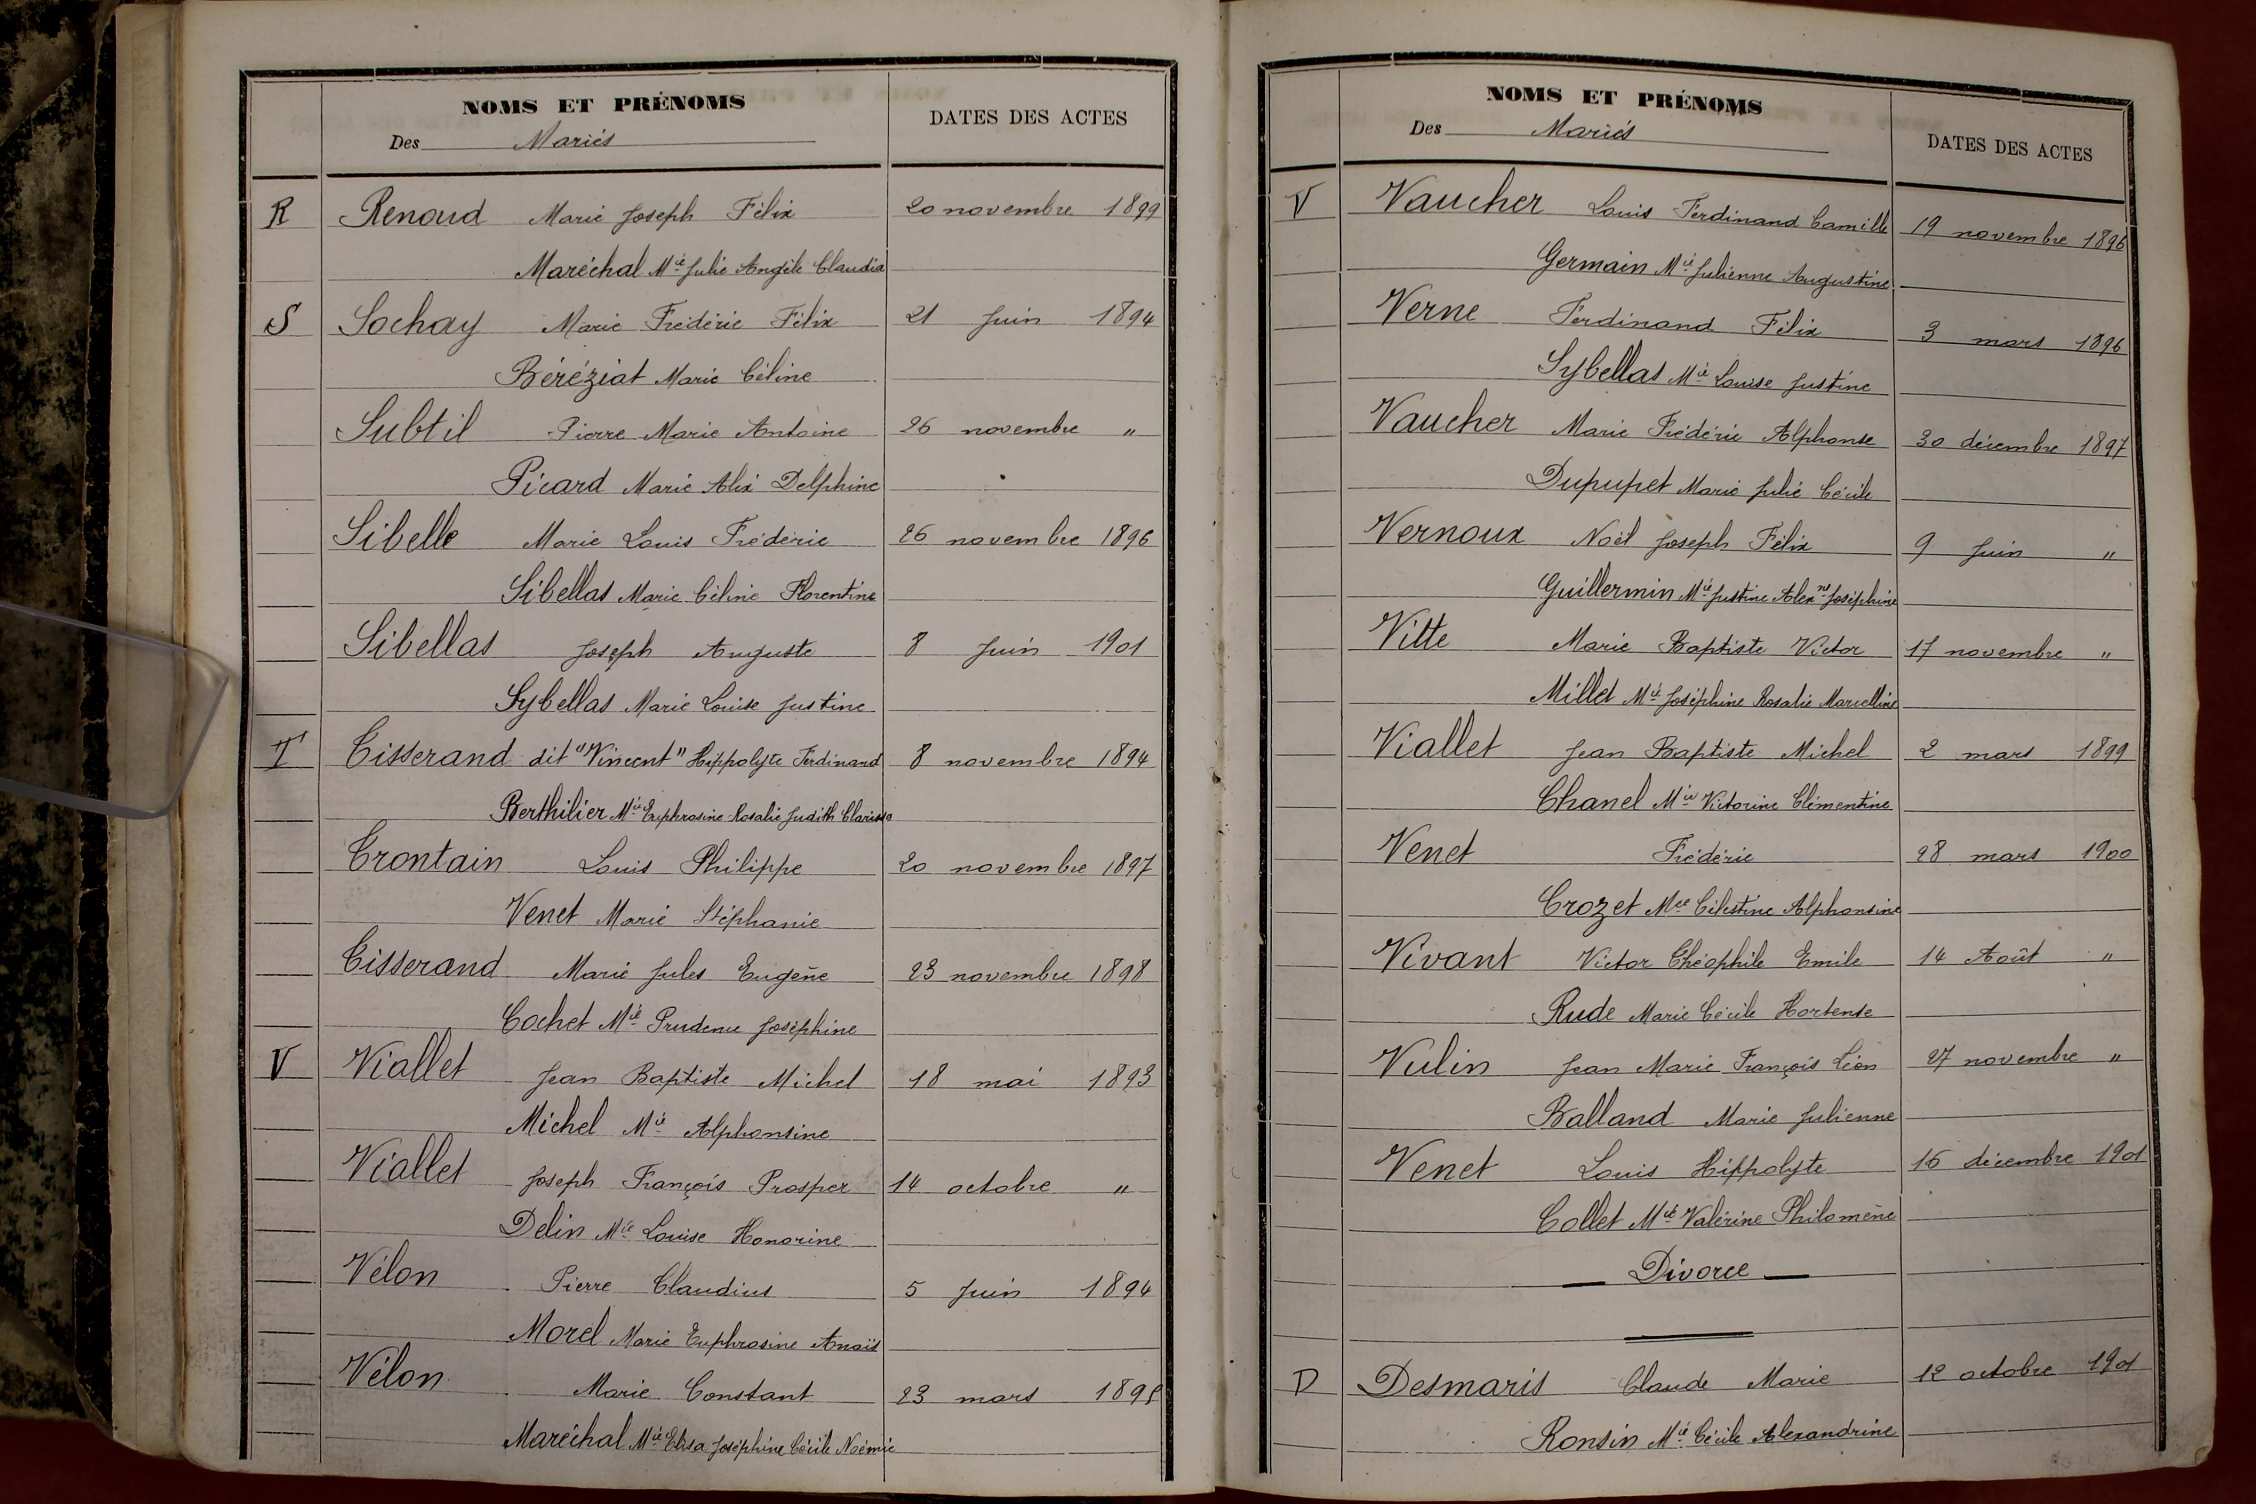 NOMS ET PRÉNOMS
Des Mariés
DATES DES ACTES
R Renoud Marie Joseph Félix 20 novembre 1899
Maréchal Mie Julie Angèle Claudia
S Sochay Marie Frédéric Félix 21 Juin 1894
Béréziat Marie Céline
Subtil Pierre Marie Antoine 26 novembre "
Picard Marie Alix Delphine
Sibelle Marie Louis Frédéric 26 novembre 1896
Sibellas Marie Céline Florentine
Sibellas Joseph Auguste 8 Juin 1901
Sybellas Marie Louise Justine
T Tisserand dit "Vincent" Hippolyte Ferdinand 8 novembre 1894
Berthilier Mie Euphrosine Rosalie Judith Clarisse
Trontain Louis Philippe 20 novembre 1897
Venet Marie Stéphanie
Tisserand Marie Jules Eugène 23 novembre 1898
Cochet Mie Prudence Joséphine
V Viallet Jean Baptiste Michel 18 mai 1893
Michel Mie Alphonsine
Viallet Joseph François Prosper 14 octobre "
Delin Mie Louise Honorine
Vélon Pierre Claudius 5 Juin 1894
Morel Marie Euphrosine Anaïs
Vélon Marie Constant 23 mars
Maréchal Mie Elisa Joséphine Cécile Noémie
NOMS ET PRÉNOMS
Des Mariés
DATES DES ACTES
V Vaucher Louis Ferdinand Camille 19 novembre 1896
Germain Mie Julienne Augustine
Verne Ferdinand Félix 3 mars 1896
Sybellas Mie Louise Justine
Vaucher Marie Frédéric Alphonse 30 décembre 1897
Dupupet Marie Julie Cécile
Vernoux Noël Joseph Félix 9 Juin "
Guillermin Mie Justine Alexne Joséphine
Vitte Marie Baptiste Victor 17 novembre "
Millet Mie Joséphine Rosalie Marcelline
Viallet Jean Baptiste Michel 2 mars 1899
Chanel Mie Victorine Clémentine
Venet Frédéric 28 mars 1900
Crozet Mie Célestine Alphonsine
Vivant Victor Théophile Emile 14 Août "
Rude Marie Cécile Hortense
Vulin Jean Marie François Léon 27 novembre "
Balland Marie Julienne
Venet Louis Hippolyte 16 décembre 1901
Collet Mie Valérine Philomène
Divorce
D Desmaris Claude Marie 12 octobre 1901
Ronsin Mie Cécile Alexandrine